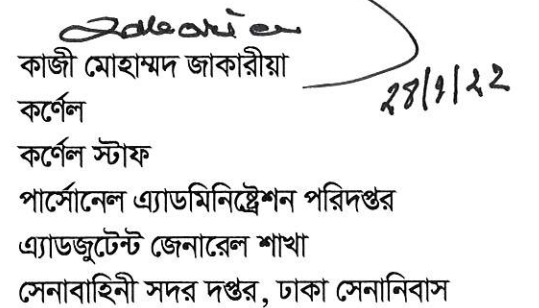 Zakaria
কাজী মোহাম্মদ জাকারীয়া
২৪/১/২২
কর্ণেল
কর্ণেল স্টাফ
পার্সোনেল এ্যাডমিনিষ্ট্রেশন পরিদপ্তর
এ্যাডজুটেন্ট জেনারেল শাখা
সেনাবাহিনী সদর দপ্তর, ঢাকা সেনানিবাস